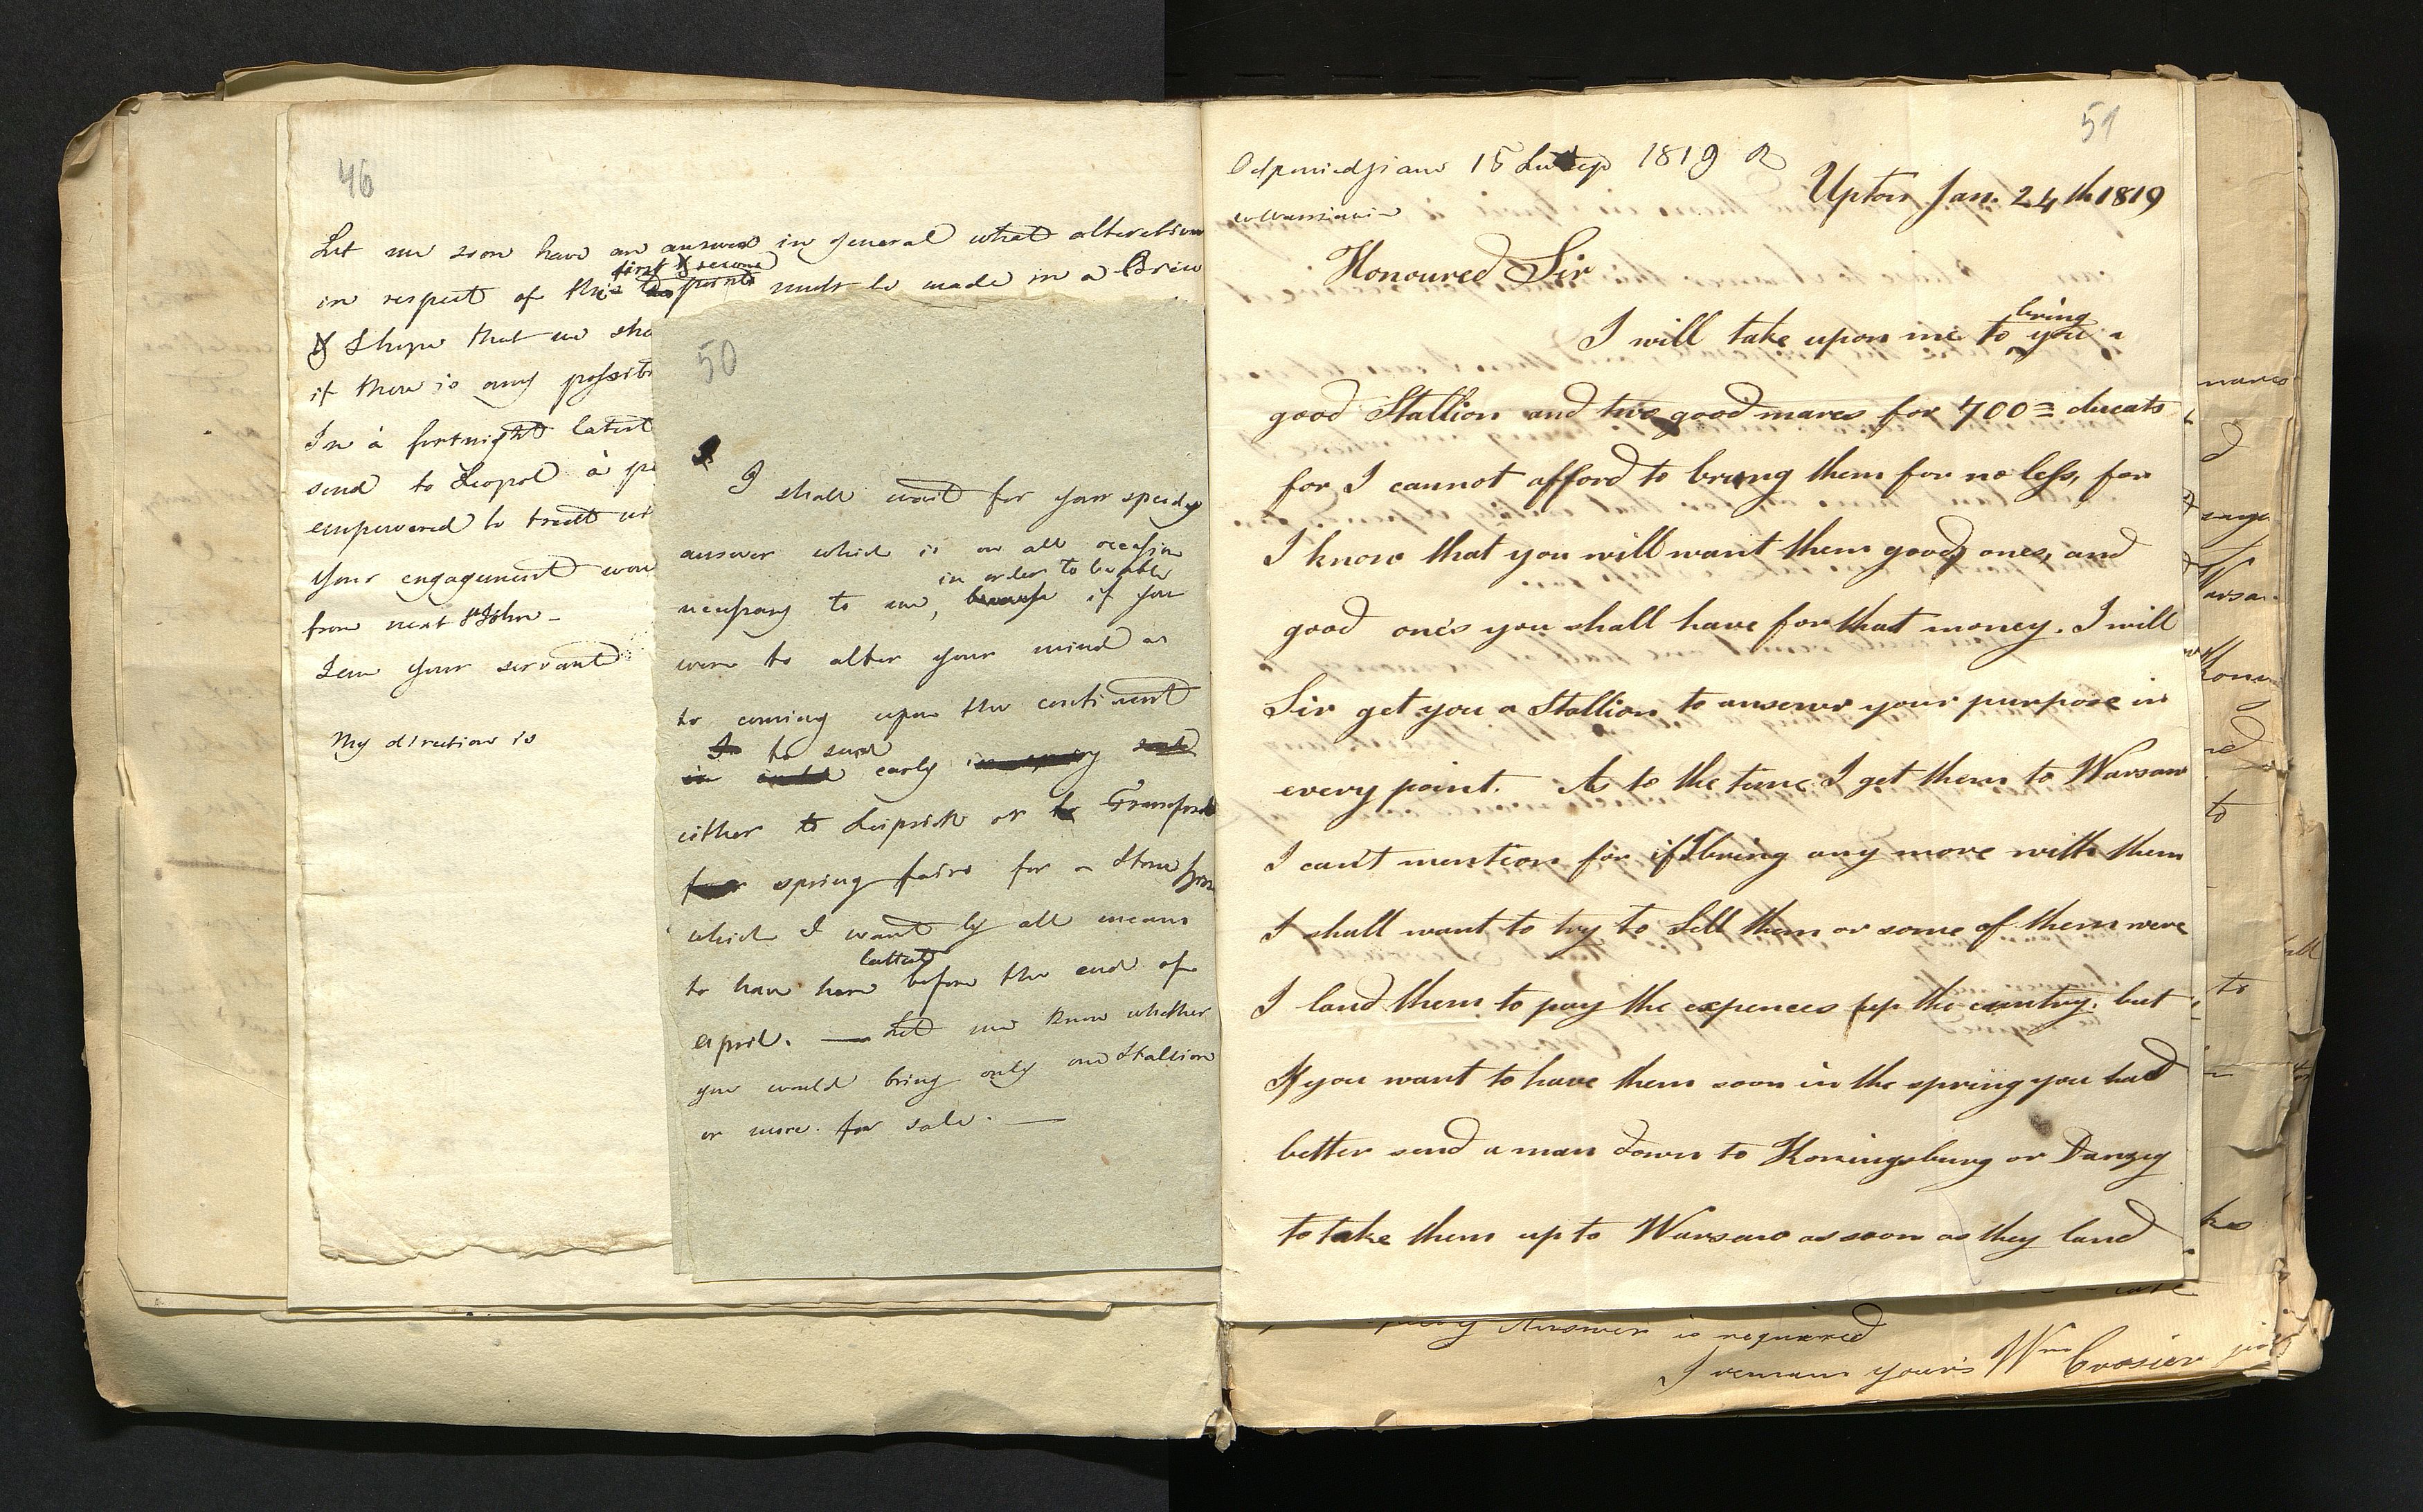 46
Let me soon have an answer in general what alteration
first & second
in respect of this points must be made in a Brew
& I hope that we sho
if there is any possib
In à fortnight latest
send to Leopol à pe
empowered to treat wi
your engagement wou
from next St John _
I am your servant
My direction is
50
I shall wait for your speedy
answer which is on all occasion
in order to be able
necessary to me, because if you
were to alter your mind as
to coming upon the continent
to send
early
either to Leipsick or to Francford
spring fairs for a Stone horse
which I want by all means
latest
to have here before the end of
april. — Let me know whether
you would bring only one Stallion
or more for sale. —
51
Odpowiedziano 15 Lutego 1819
Upton Jan. 24th 1819
Honoured Sir
bring
I will take upon me to you a
good Stallion and two good mares for 700 = ducats
for I cannot afford to bring them for no less, for
I know that you will want them good ones, and
good one's you shall have for that money. I will
Sir get you a Stallion to answer your purpose in
every point. As to the time I get them to Warsaw
I can't mention for if I bring any more with them
I shall want to try to Sell them or some of them were
I land them to pay the expences up the cuntry. but
If you want to have them soon in the spring you had
better send a man down to Koningsburg or Danzig
to take them up to Warsaw as soon as they land
mares
I
Warsa
to
to
Answer is required
I remain your's Wm Crosier